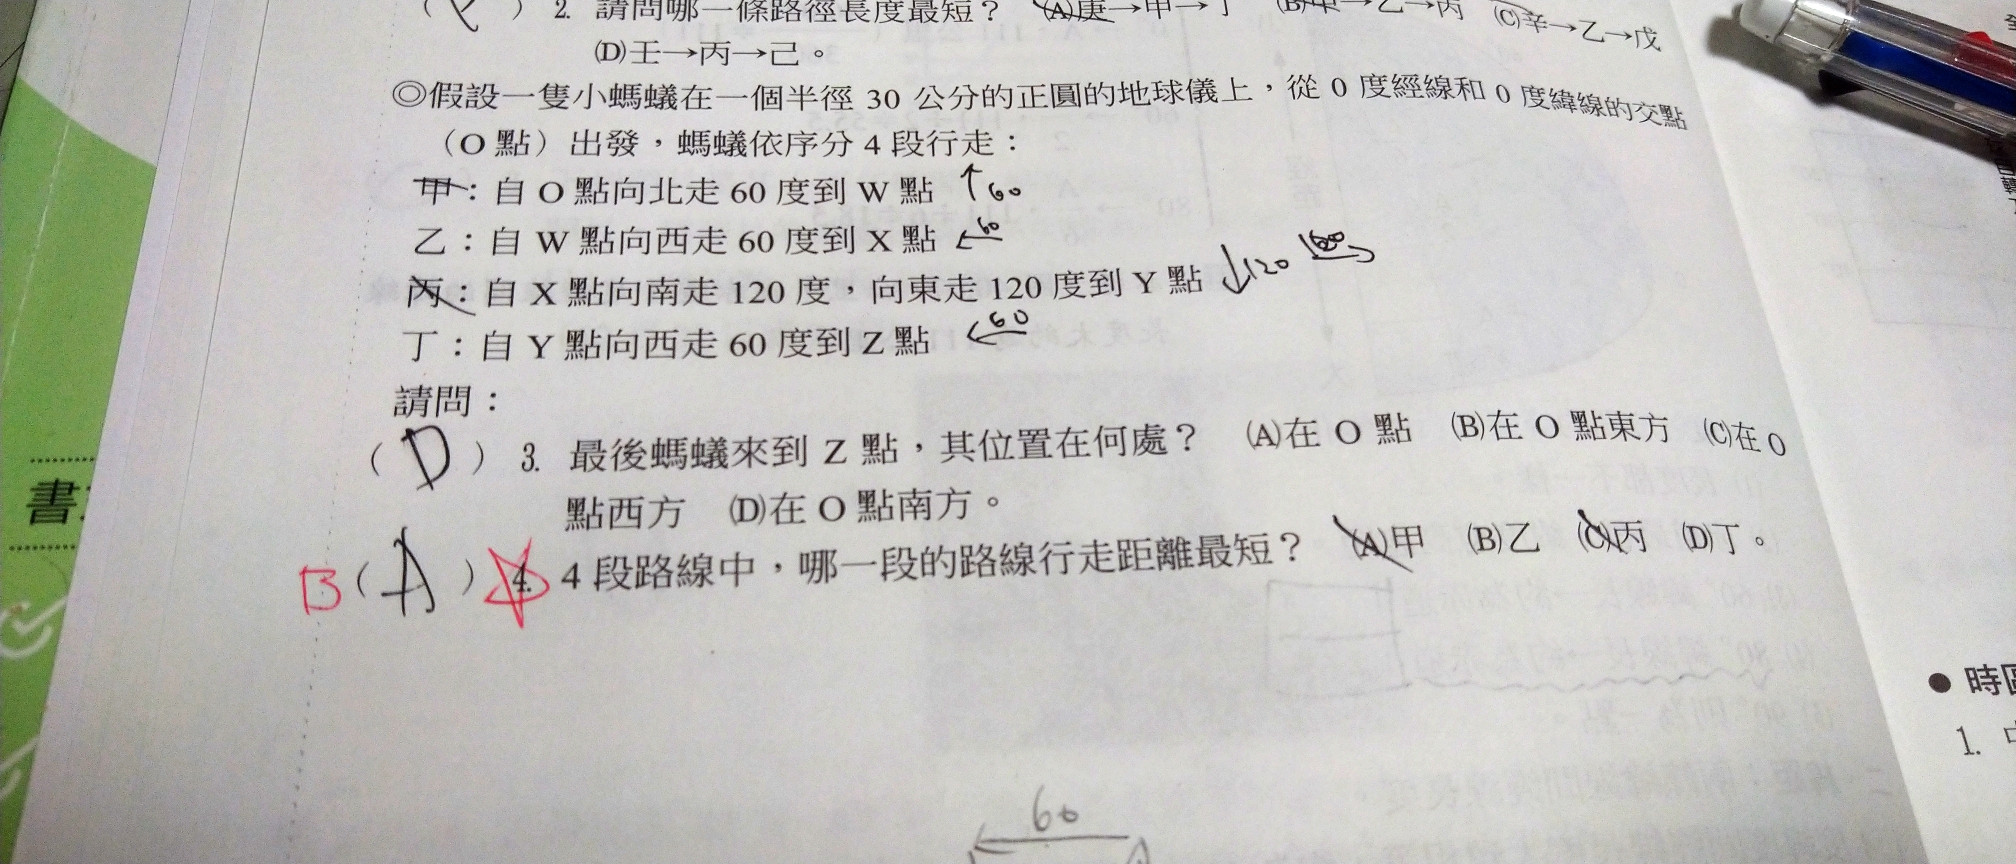 ( ) 2. 請問哪一條路徑長度最短？ (A)庚→甲→丁 (B)甲→乙→丙 (C)辛→乙→戊
(D)壬→丙→己。
◎假設一隻小螞蟻在一個半徑 30 公分的正圓的地球儀上，從 0 度經線和 0 度緯線的交點
（O 點）出發，螞蟻依序分 4 段行走：
甲：自 O 點向北走 60 度到 W 點 ↑60
乙：自 W 點向西走 60 度到 X 點 ←60
丙：自 X 點向南走 120 度，向東走 120 度到 Y 點 ↓120
丁：自 Y 點向西走 60 度到 Z 點 ←60
請問：
( D ) 3. 最後螞蟻來到 Z 點，其位置在何處？ (A)在 O 點 (B)在 O 點東方 (C)在 O
點西方 (D)在 O 點南方。
B ( A ) 4. 4 段路線中，哪一段的路線行走距離最短？ (A)甲 (B)乙 (C)丙 (D)丁。
60
書
● 時
1.